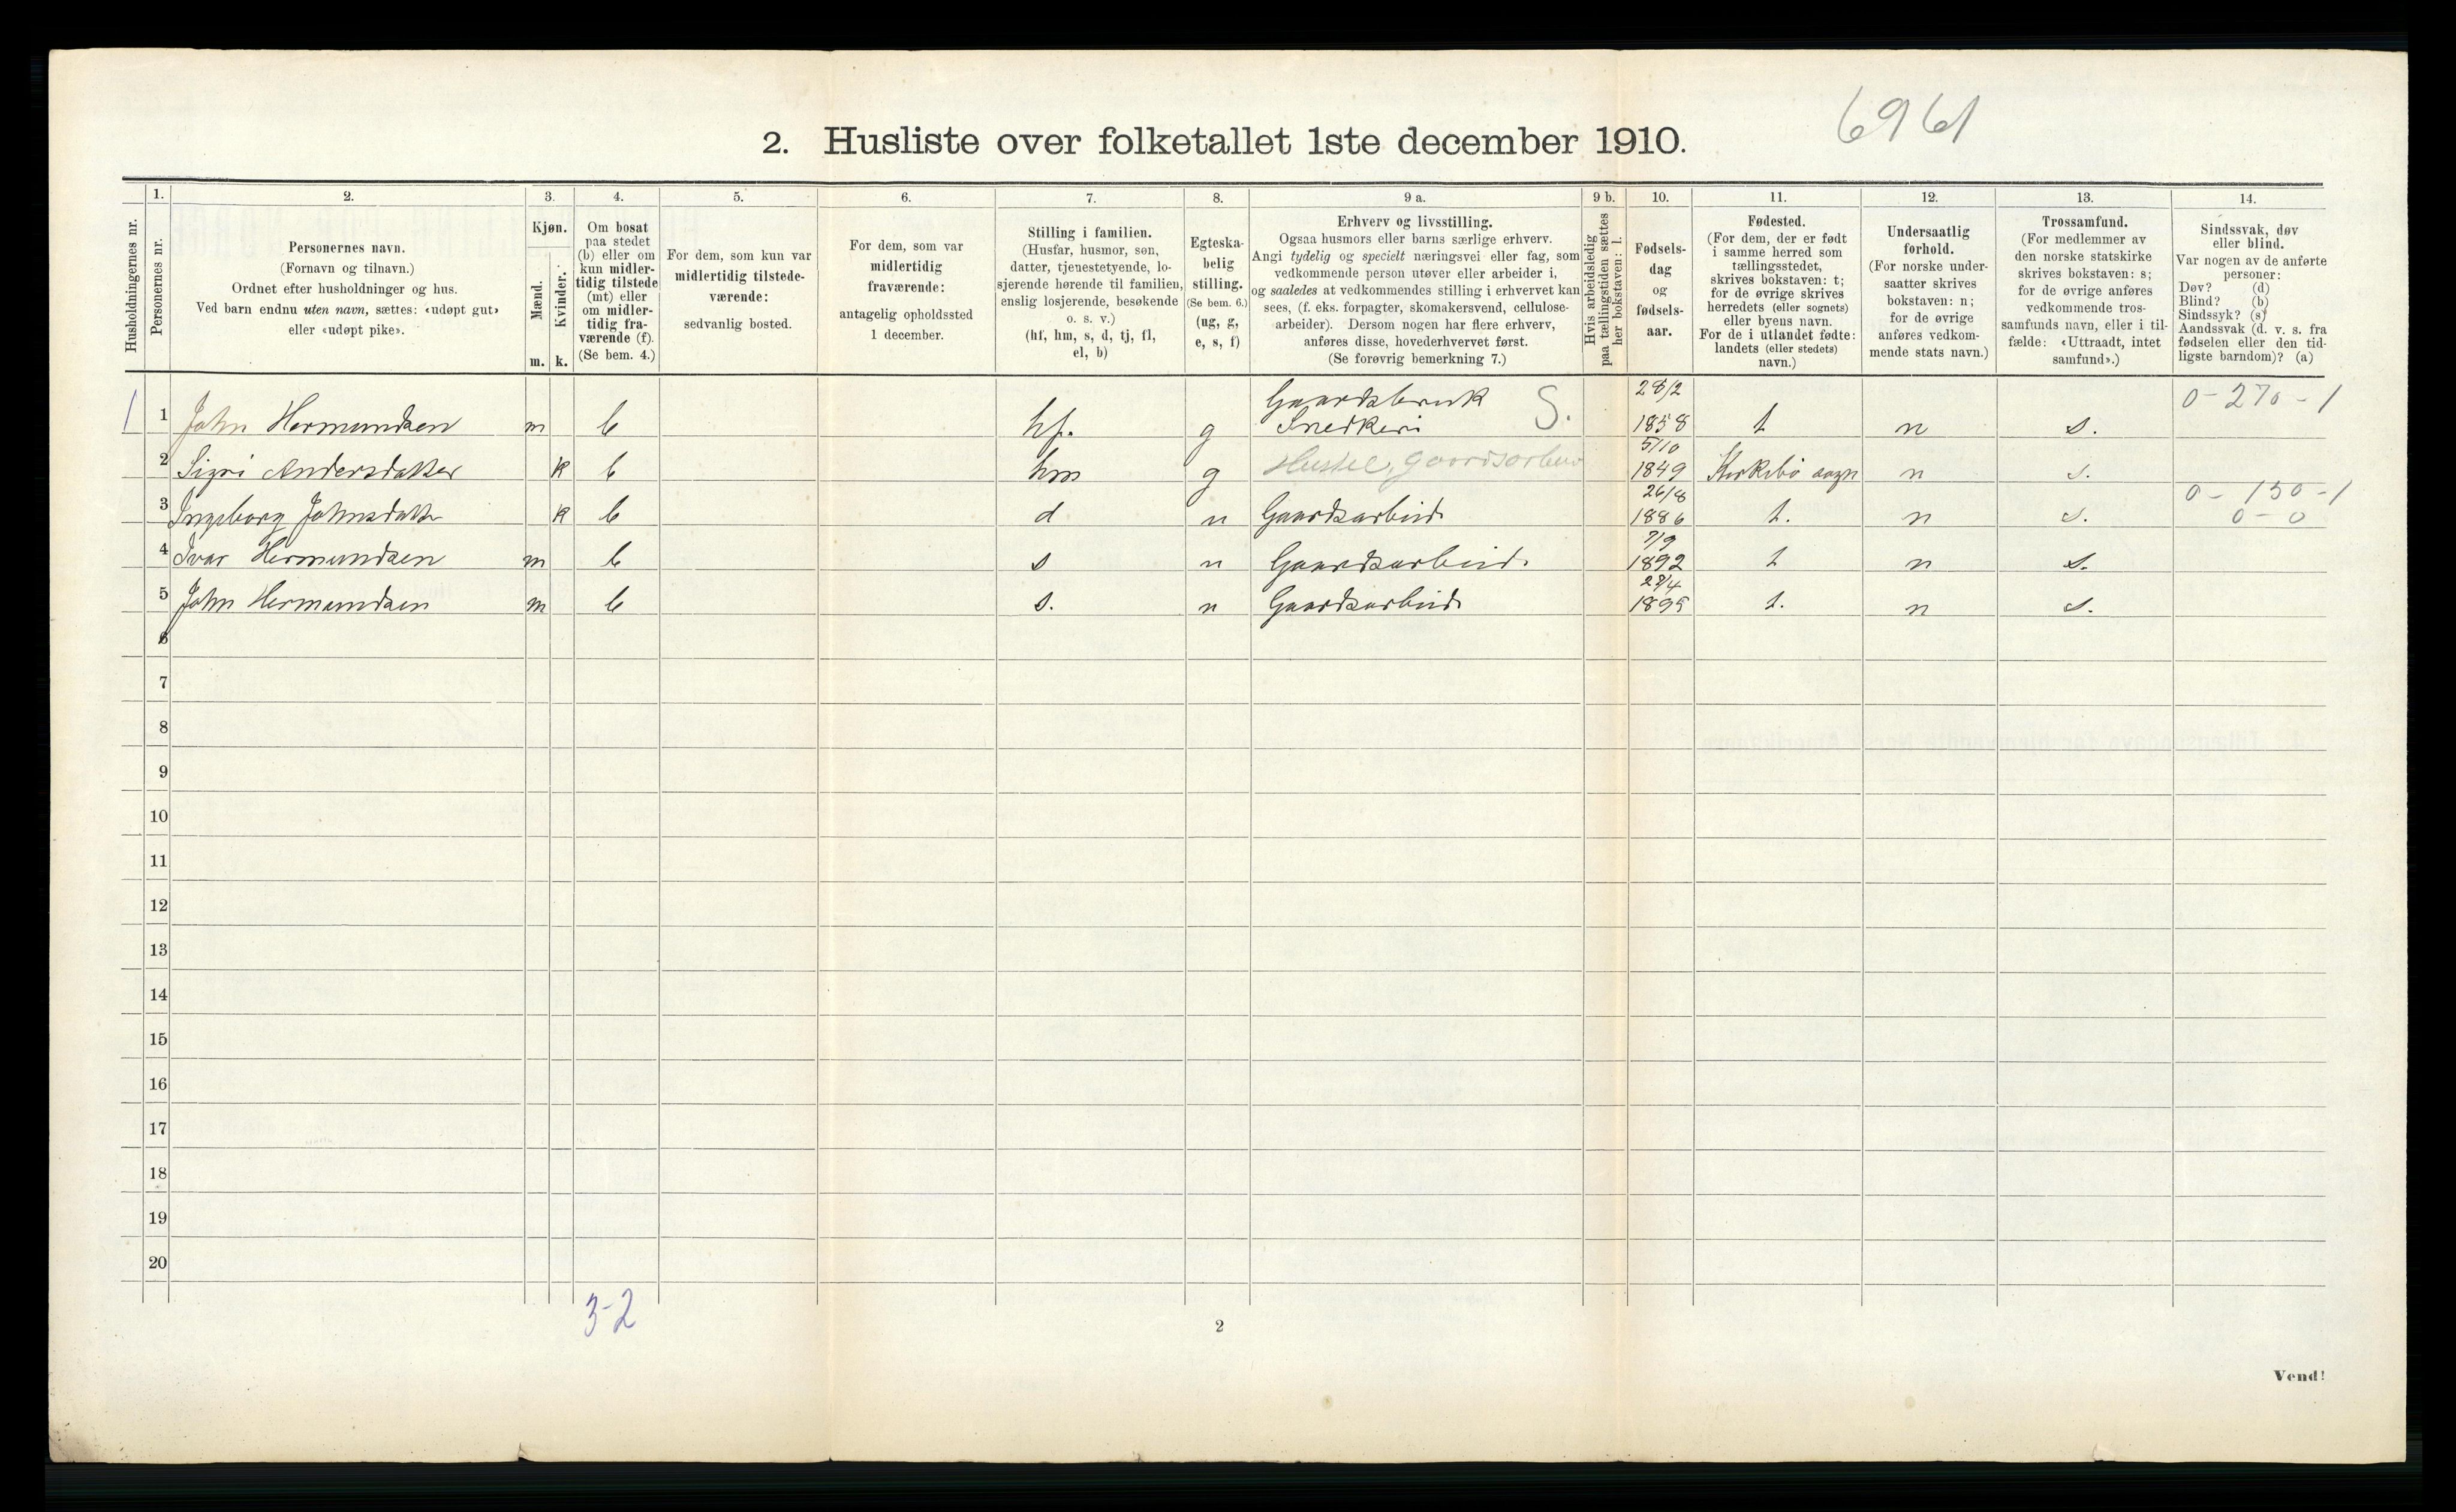 6961
2. Husliste over folketallet 1ste december 1910.
1. 2. 3. 4. 5. 6. 7. 8. 9 a. 9 b. 10. 11. 12. 13. 14.
Husholdningernes nr.
Personernes nr.
Personernes navn.
(Fornavn og tilnavn.)
Ordnet efter husholdninger og hus.
Ved barn endnu uten navn, sættes: «udøpt gut»
eller «udøpt pike».
Kjøn.
Mænd.
Kvinder.
m. k.
Om bosat
paa stedet
(b) eller om
kun midler-
tidig tilstede
(mt) eller
om midler-
tidig fra-
værende (f).
(Se bem. 4.)
For dem, som kun var
midlertidig tilstede-
værende:
sedvanlig bosted.
For dem, som var
midlertidig
fraværende:
antagelig opholdssted
1 december.
Stilling i familien.
(Husfar, husmor, søn,
datter, tjenestetyende, lo-
sjerende hørende til familien,
enslig losjerende, besøkende
o. s. v.)
(hf, hm, s, d, tj, fl,
el, b)
Egteska-
belig
stilling.
(Se bem. 6.)
(ug, g,
e, s, f)
Erhverv og livsstilling.
Ogsaa husmors eller barns særlige erhverv.
Angi tydelig og specielt næringsvei eller fag, som
vedkommende person utøver eller arbeider i,
og saaledes at vedkommendes stilling i erhvervet kan
sees, (f. eks. forpagter, skomakersvend, cellulose-
arbeider). Dersom nogen har flere erhverv,
anføres disse, hovederhvervet først.
(Se forøvrig bemerkning 7.)
Hvis arbeidsledig
paa tællingstiden sættes
her bokstaven: l.
Fødsels-
dag
og
fødsels-
aar.
Fødested.
(For dem, der er født
i samme herred som
tællingsstedet,
skrives bokstaven: t;
for de øvrige skrives
herredets (eller sognets)
eller byens navn.
For de i utlandet fødte:
landets (eller stedets)
navn.)
Undersaatlig
forhold.
(For norske under-
saatter skrives
bokstaven: n;
for de øvrige
anføres vedkom-
mende stats navn.)
Trossamfund.
(For medlemmer av
den norske statskirke
skrives bokstaven: s;
for de øvrige anføres
vedkommende tros-
samfunds navn, eller i til-
fælde: «Uttraadt, intet
samfund».)
Sindssvak, døv
eller blind.
Var nogen av de anførte
personer:
Døv? (d)
Blind? (b)
Sindssyk? (s)
Aandssvak (d. v. s. fra
fødselen eller den tid-
ligste barndom)? (a)
Gaardsbruk S. 28/2 0-270-1
1 1 John Hermundsen m b hf. g Snedkeri 1858 t n s.
5/10
2 Sigri Andersdatter k b hm g Husstel, gaardsarbeid 1849 Kirkebø sogn n s.
26/8 0-150-1
3 Ingeborg Johnsdatter k b d u Gaardsarbeid 1886 t. n s. 0-0
7/9
4 Ivar Hermundsen m b s u Gaardsarbeid. 1892 t n s.
5 John Hermundsen m b s. u Gaardsarbeid 1895 t. n s.
6
7
8
9
10
11
12
13
14
15
16
17
18
19
20
3-2
2
Vend!